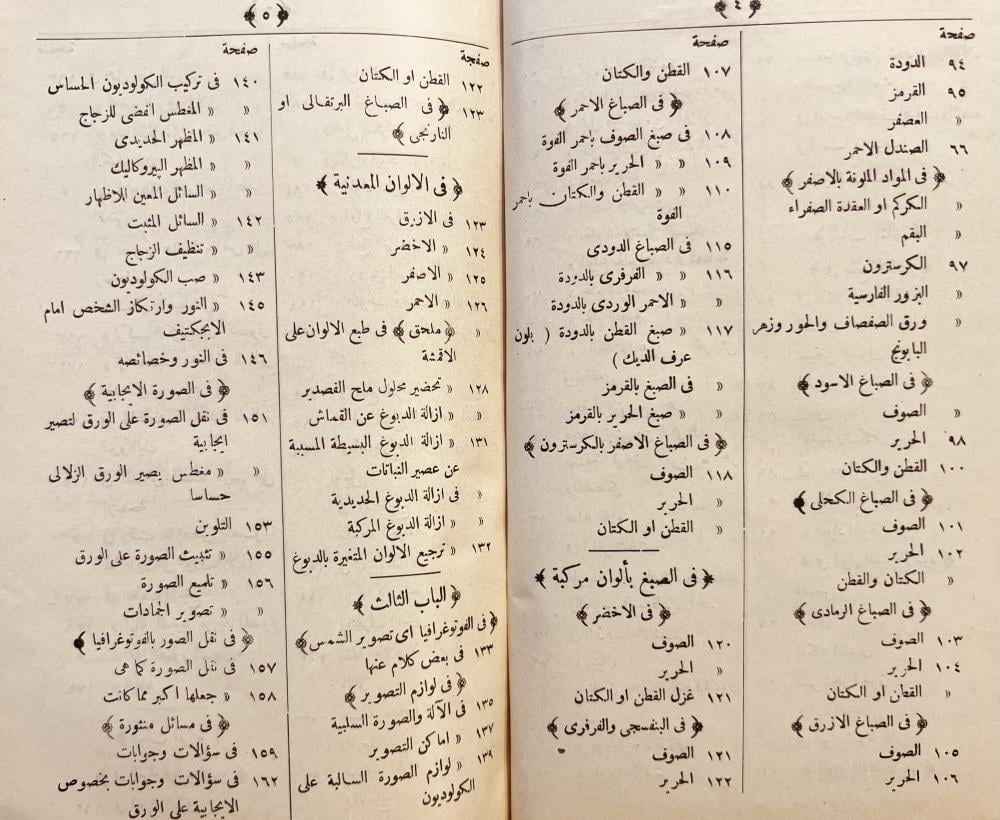 ﴿ ٤ ﴾
صفحة
٩٤ الدودة
٩٥ القرمز
» العصفر
٦٦ الصندل الاحمر
﴿ فى المواد الملونة بالاصفر ﴾
» الكركم او العقدة الصفراء
» البقم
٩٧ الكرسترون
» البزور الفارسية
» ورق الصفصاف والحور وزهر
البابونج
﴿ فى الصباغ الاسود ﴾
» الصوف
٩٨ الحرير
١٠٠ القطن والكتان
﴿ فى الصباغ الكحلى ﴾
١٠١ الصوف
١٠٢ الحرير
» الكتان والقطن
﴿ فى الصباغ الرمادى ﴾
١٠٣ الصوف
١٠٤ الحرير
» القطن او الكتان
﴿ فى الصباغ الازرق ﴾
١٠٥ الصوف
١٠٦ الحرير
صفحة
١٠٧ القطن والكتان
﴿ فى الصباغ الاحمر ﴾
١٠٨ فى صبغ الصوف باحمر الفوة
١٠٩ » » الحرير باحمر الفوة
١١٠ » » القطن والكتان باحمر
الفوة
١١٥ فى الصباغ الدودى
١١٦ » » الفرفرى بالدودة
» » الاحمر الوردى بالدودة
١١٧ » صبغ القطن بالدودة ( بلون
عرف الديك )
» فى الصبغ بالقرمز
» » صبغ الحرير بالقرمز
﴿ فى الصباغ الاصفر بالكرسترون ﴾
١١٨ الصوف
» الحرير
» القطن او الكتان
﴿ فى الصبغ بألوان مركبة ﴾
﴿ فى الاخضر ﴾
١٢٠ الصوف
» الحرير
١٢١ غزل القطن او الكتان
﴿ فى البنفسجى والفرفرى ﴾
١٢١ الصوف
١٢٢ الحرير
﴿ ٥ ﴾
صفحة
١٢٢ القطن او الكتان
١٢٣ ﴿ فى الصباغ البرتقالى او
النارنجى ﴾
﴿ فى الالوان المعدنية ﴾
١٢٣ فى الازرق
١٢٤ » الاخضر
١٢٥ » الاصفر
١٢٦ » الاحمر
» ﴿ ملحق ﴾ فى طبع الالوان على
الاقمشة
١٢٨ » تحضير محلول ملح القصدير
» » ازالة الدبوغ عن القماش
١٣١ » ازالة الدبوغ البسيطة المسببة
عن عصير النباتات
» فى ازالة الدبوغ الحديدية
» » ازالة الدبوغ المركبة
١٣٢ » ترجيع الالوان المتغيرة بالدبوغ
﴿ الباب الثالث ﴾
﴿ فى الفوتوغرافيا اى تصوير الشمس ﴾
١٣٣ فى بعض كلام عنها
﴿ فى لوازم التصوير ﴾
١٣٥ فى الآلة والصورة السلبية
١٣٧ » اماكن التصوير
١٣٩ » لوازم الصورة السالبة على
الكولوديون
صفحة
١٤٠ فى تركيب الكولوديون الحساس
» » المغطس الفضى للزجاج
١٤١ » المظهر الحديدى
» » المظهر البيروكاليك
» » السائل المعين للاظهار
١٤٢ » السائل المثبت
» » تنظيف الزجاج
١٤٣ » صب الكولوديون
١٤٥ » النور وارتكاز الشخص امام
الابجكتيف
١٤٦ فى النور وخصائصه
﴿ فى الصورة الايجابية ﴾
١٥١ فى نقل الصورة على الورق لتصير
ايجابية
» » مغطس يصير الورق الزلالى
حساسا
١٥٣ التلوين
١٥٥ » تثبيت الصورة على الورق
١٥٦ » تلميع الصورة
» » تصوير الجمادات
﴿ فى نقل الصور بالفوتوغرافيا ﴾
١٥٧ فى نقل الصورة كما هى
١٥٨ » جعلها اكبر مما كانت
﴿ فى مسائل منثورة ﴾
١٥٩ فى سؤالات وجوابات
١٦٢ فى سؤالات وجوابات بخصوص
الايجابية على الورق